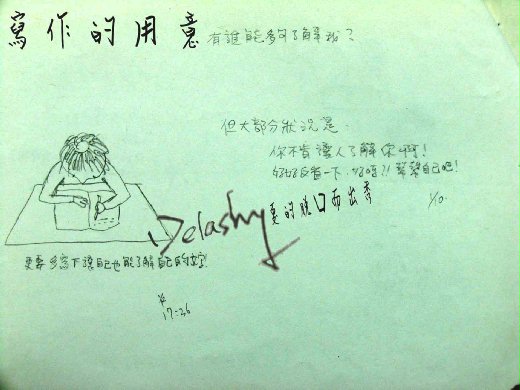 寫作的用意 有誰能夠了解我?
但大部分狀況是
你不肯讓人了解你啊!
好好反省一下,好嗎?! 幫幫自己吧!
1/10.
Delashy
更的脫口而出書
更要多寫下讓自己也能了解自己的
17:26